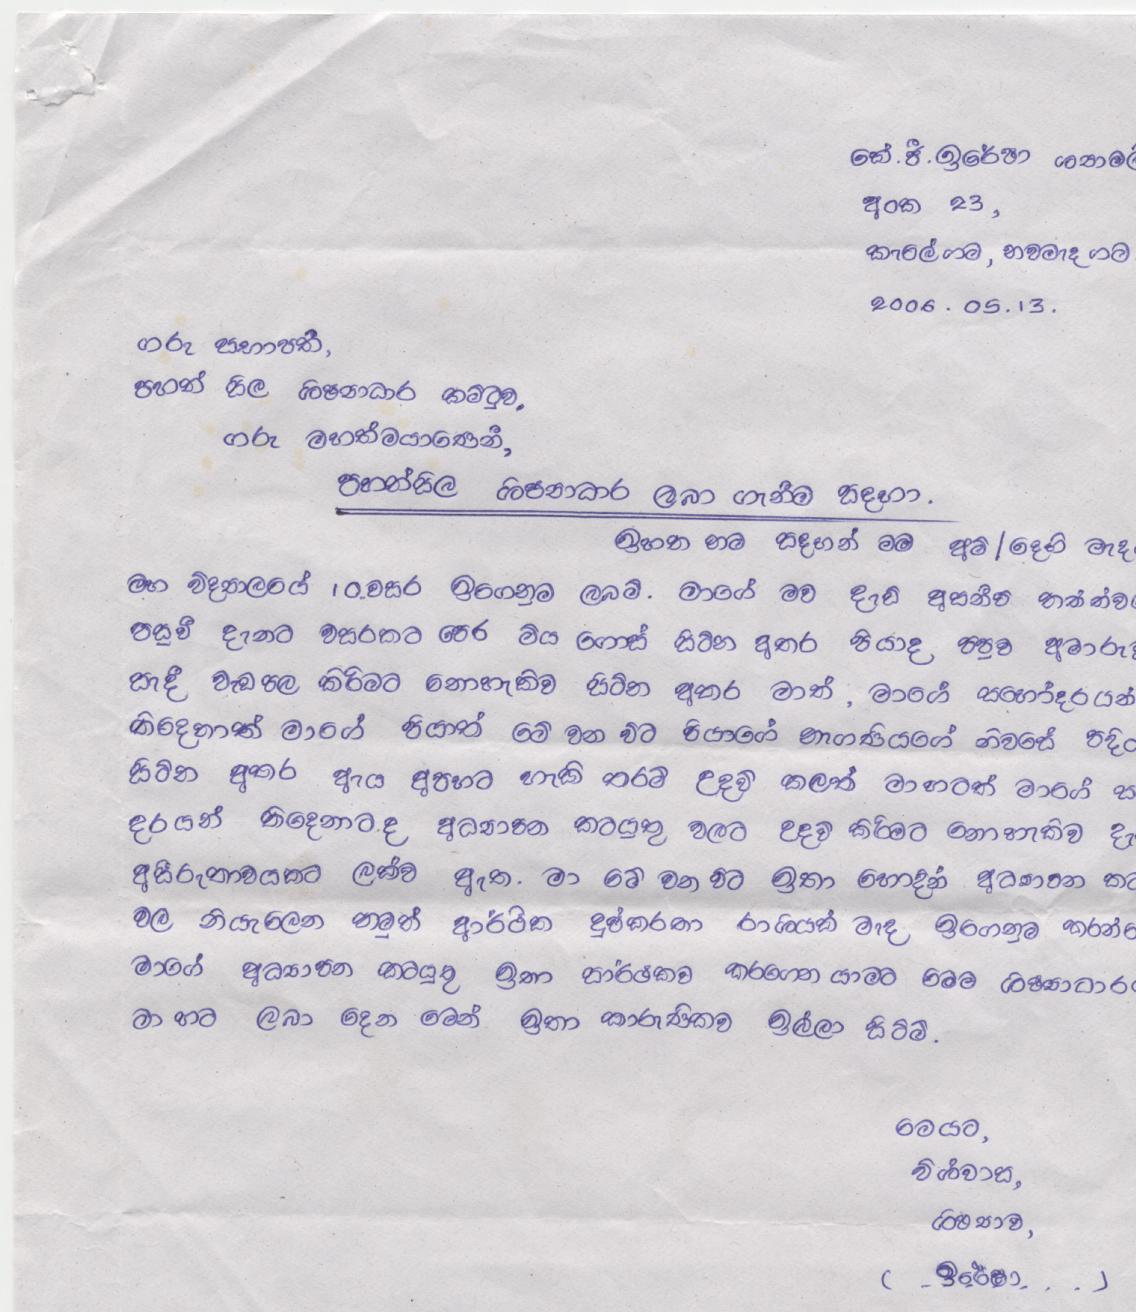 කේ.ජී.ඉරේෂා ශ්‍යාමලී
අංක 23,
කැලේගම, නවමැදගම
2006.05.13.
ගරු සභාපතී,
පහන් සිල ශිෂ්‍යාධාර කමිටුව.
ගරු මහත්මයාණෙනි,
පහන්සිල ශිෂ්‍යාධාර ලබා ගැනීම සඳහා.
ඉහත නම සඳහන් මම අම්/දෙහි මැද
මහ විද්‍යාලයේ 10.වසර ඉගෙනුම ලබමි. මාගේ මව දැඩි අසනීප තත්ත්ව
පසුවී දැනට වසරකට පෙර මිය ගොස් සිටින අතර පියාද පපුව අමාරුව
සෑදී වැඩපල කිරීමට නොහැකිව සිටින අතර මාත්, මාගේ සහෝදරයන්
තිදෙනාත් මාගේ පියාත් මේ වන විට පියාගේ නැගණියගේ නිවසේ පදිං
සිටින අතර ඇය අපහට හැකි තරම් උදව් කලත් මාහටත් මාගේ ස
දරයන් තිදෙනාට.ද අධ්‍යාපන කටයුතු වලට උදව් කිරීමට නොහැකිව දැ
අසීරුතාවයකට ලක්ව ඇත. මා මේ වන විට ඉතා හොදින් අධ්‍යාපන කට
වල නියැලෙන නමුත් ආර්ථික දුෂ්කරතා රාශියක් මැද ඉගෙනුම කරන්
මාගේ අධ්‍යාපන කටයුතු ඉතා සාර්ථකව කරගෙන යාමට මෙම ශිෂ්‍යාධාර
මා හට ලබා දෙන මෙන් ඉතා කාරුණිකව ඉල්ලා සිටිමි.
මෙයට,
විශ්වාස,
ශිෂ්‍යාව,
( . ඉරේෂා. . . )